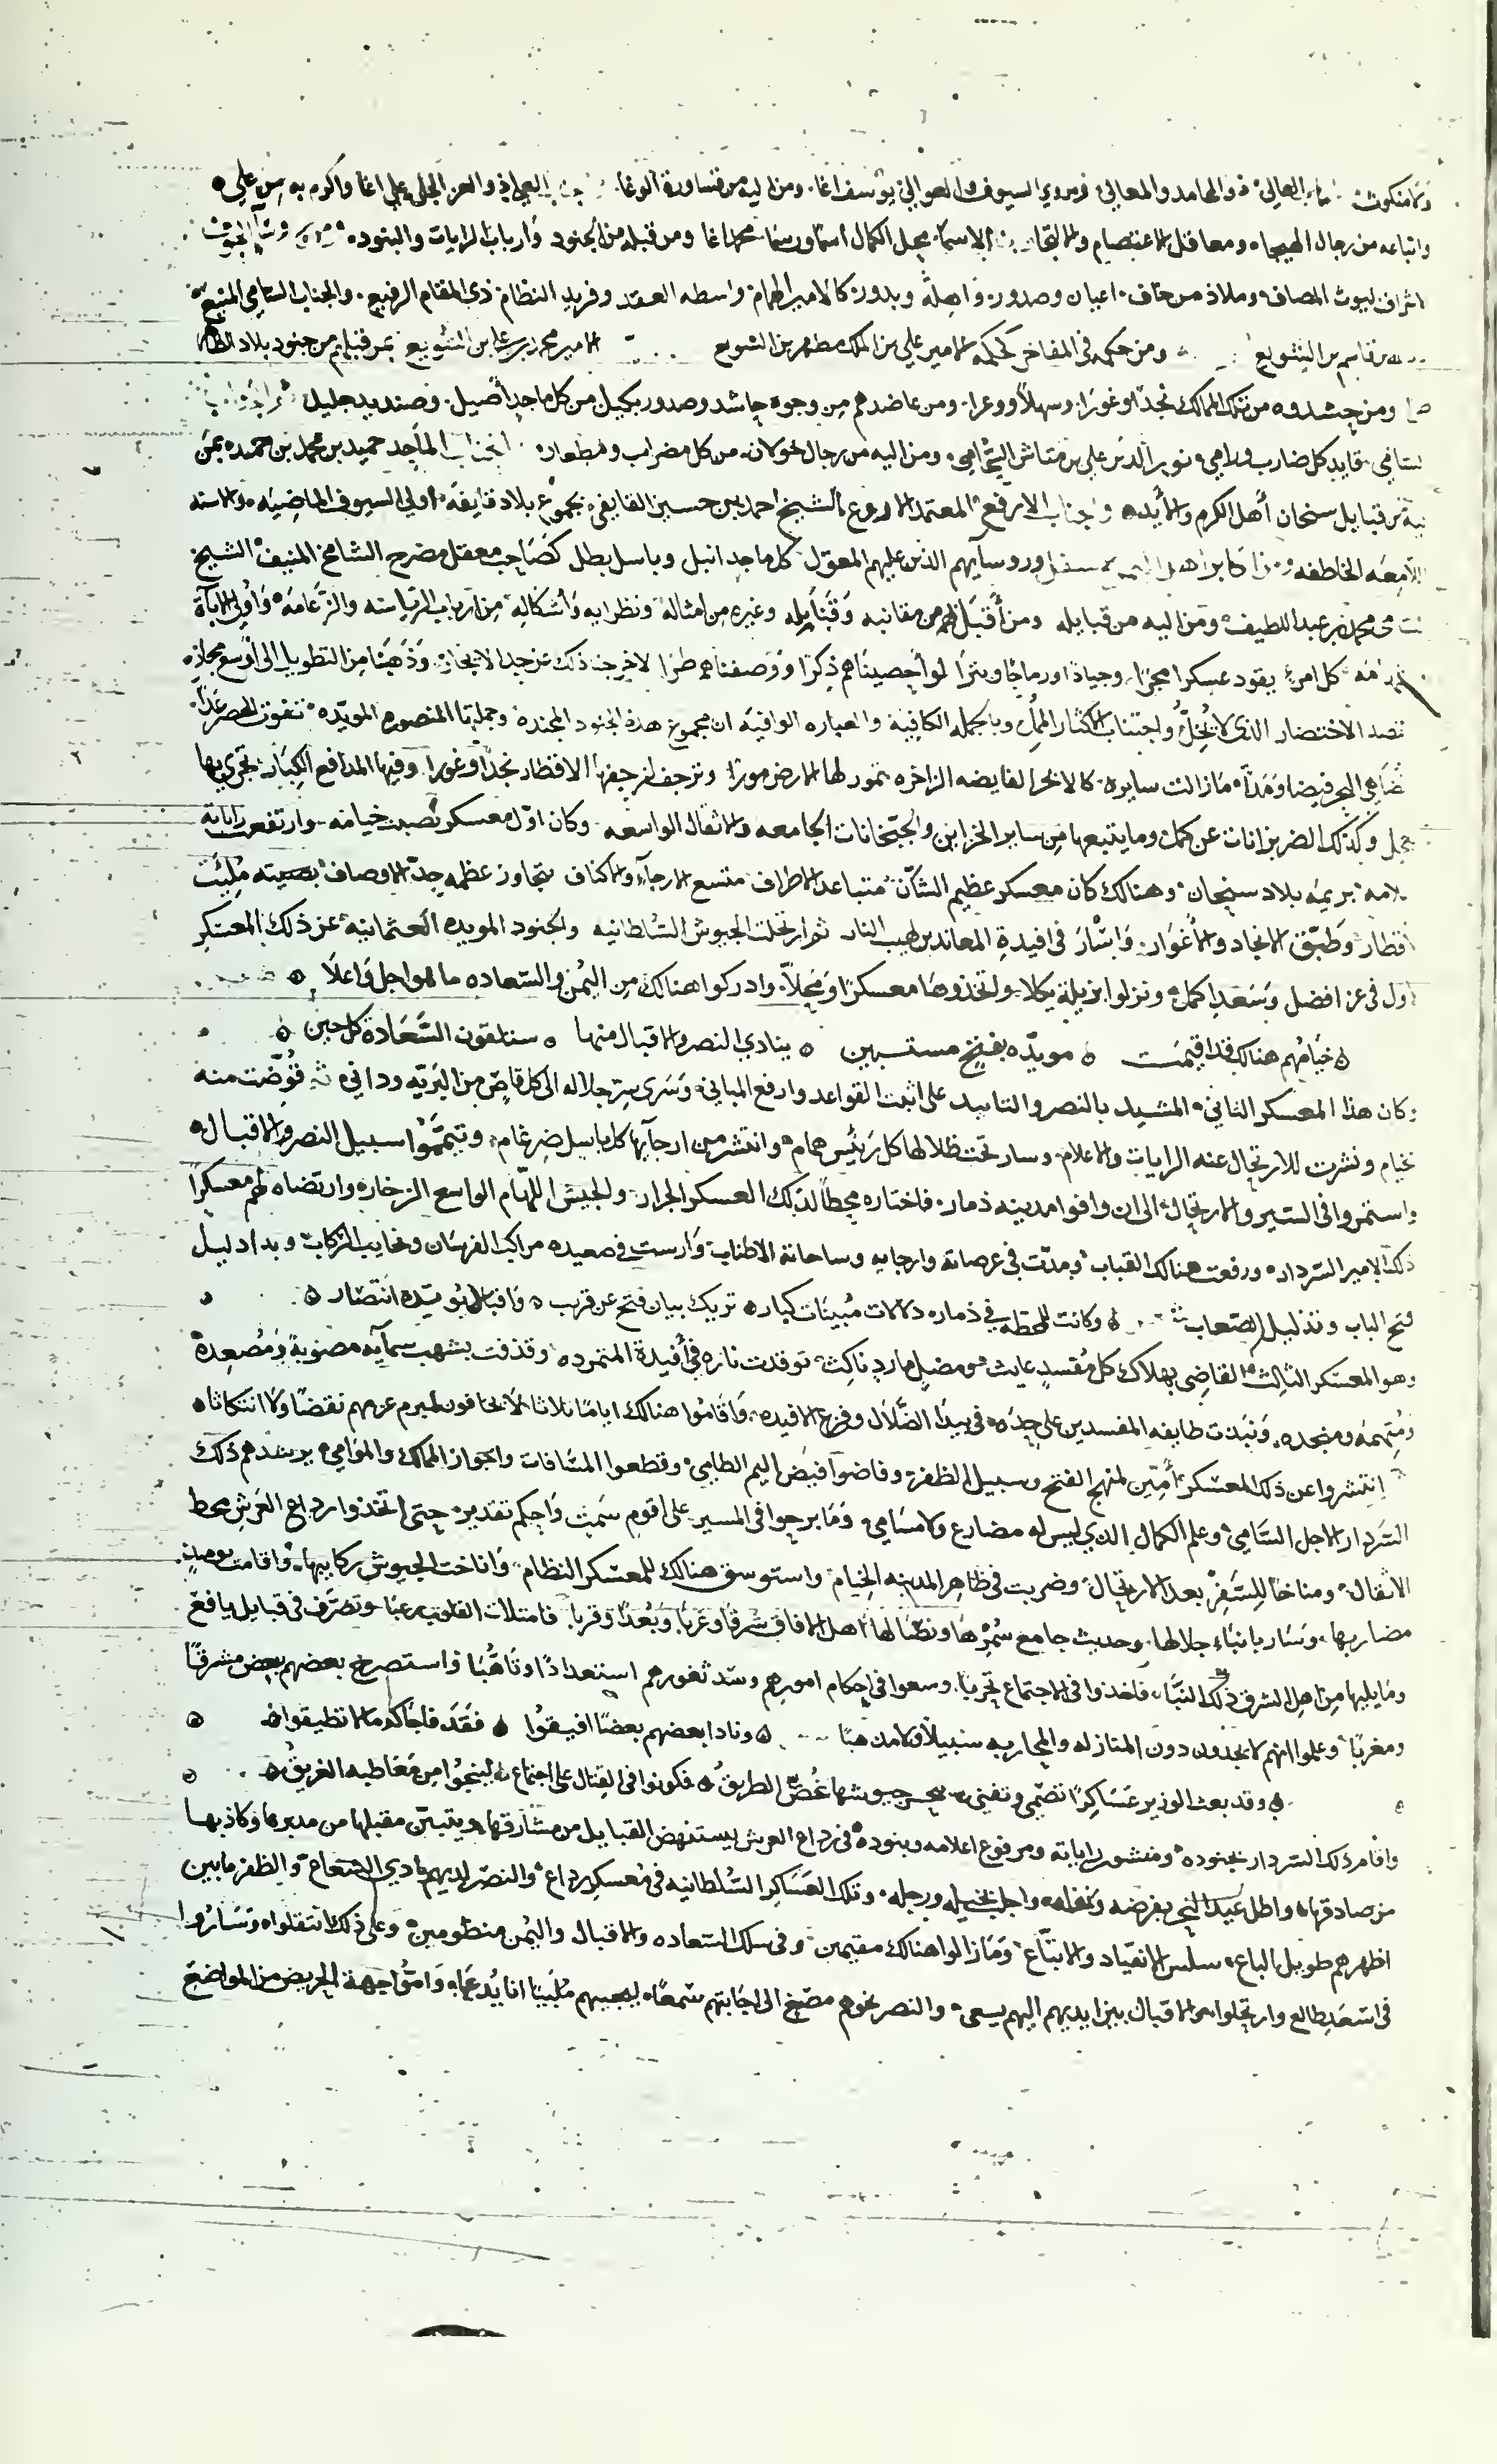 العالي ذو المحامد والمعالي ومروي السيوف والعوالي يوسف اغا ومن اليه من قساورة الوغا والعز الجلي علي اغا واكرم به من علي
واتباعه من رجال الهيجاء ومعاقل الاعتصام محل الكمال اسما ورسما محمد اغا ومن قبله من الجنود وارباب الرايات والبنود
اشراف ليوث المصاف وملاذ من خاف اعيان وصدور واهلة وبدور كالامير الهمام واسطه العقد وفريد النظام ذي المقام الرفيع والجناب السامي المنيع
بن قاسم بن الشويع ومن حكمه في المفاخر كحكمه الامير علي بن الملك مطهر بن الشويع الامير محمد بن علي بن الشويع بمن قبلهم من جنود بلاد الظاهر
ومن حشدوه من تلك الممالك نجدا وغورا وسهلا ووعرا ومن عاضدهم من وجوه حاشد وصدور بكيل من كل ماجد أصيل وصنديد جليل
قايد كل ضارب ورامي نور الدين علي بن ومن اليه من رجال خولان من كل مضراب ومطعان الماجد حميد بن محمد بن حميده بمن
من قبايل سنحان أهل الكرم والأيد وجناب الارفع المعتمد الاروع الشيخ احمد بن حسين القايفي بجموع بلاد قايفة أولي السيوف الماضيه والاسنه
اللامعه الخاطفه وروسآيهم الذين عليهم المعول كل ماجد انبل وباسل بطل كصاحب معقل مضرح الشامخ المنيف الشيخ
محمد بن عبد اللطيف ومن اليه من قبايله ومن أقبل لهم من مقانبه وقنابله وغيره من امثاله ونظرايه وأشكاله من ارباب الرياسه والزعامه وأولي
كل امرئ يقود عسكرا مجرا وجيادا ورماحا وبترا لو أحصيناهم ذكرا ووصفناهم طرا لاخرجنا ذلك عن حد الايجاز وذهبنا من التطويل الى أوسع مجاز
قصد الاختصار الذي لا يخل واجتناب الاكثار الممل وبالجمله الكافية والعباره الوافيه ان مجموع هذه الجنود المجنده وجملتها المنصوره المويده تفوق الحصر عدا
تضاهي البحر فيضا ومدا ما زالت سايره كالابحر الفايضه الزاخره تمور لها الارض مورا وترجف لرجفها الاقطار نجدا وغورا وفيها المدافع الكبار تجري بها
عجل وكذلك الضربزانات عن كمل وما يتبعها من ساير الخزاين والجبخانات الجامعه والاثقال الواسعه وكان اول معسكر نصبت خيامه وارتفعت راياته
بريمه بلاد سنحان وهنالك كان معسكر عظيم الشأن متباعد الاطراف متسع الارجآء والاكناف يتجاوز عظمه حد الاوصاف بصيته ملئت
أقطار وطبق الانجاد والأغوار وأثار في افيدة المعاندين لهيب النار ثم ارتحلت الجيوش السلطانيه والجنود المويده العثمانيه عن ذلك المعسكر
اول في عز افضل وسعد اكمل ونزلوا بزيلة يكلا واتخذوها معسكرا ومحلا وادركوا هنالك من اليمن والسعاده ما هو اجل واعلا
خيامهم هنالك قد اقيمت مويده بفتح مستبين ينادي النصر والاقبال منها ستلقون السعادة كل حين
وكان هذا المعسكر الثاني المشيد بالنصر والتاييد على اثبت القواعد وارفع المباني وسرى سر جلاله الى كل قاص من البريه وداني ثم قوضت منه
خيام ونشرت للارتحال عنه الرايات والاعلام وسار تحت ظلالها كل رئيس همام وانتشر من ارجآيها كل باسل ضرغام وتيمموا سبيل النصر والاقبال
واستمروا في السير والارتحال الى ان وافوا مدينه ذمار فاختاره محطا لذلك العسكر الجرار والجيش اللهام الواسع الزخار وارتضاه لهم معسكرا
ذلك الامير السردار ورفعت هنالك القباب ومدت في عرصاته وارجايه وساحاته الاطناب وارست في صعيده مراكب الفرسان ونجايب الركاب وبدا دليل
فتح الباب وتذليل الصعاب وكانت للمحطه في ذمار دلالات مبينات كبار تريك بيان فتح عن قريب واقبال يويده انتصار
وهو المعسكر الثالث القاضي بهلاك كل مفسد عايث ومضل مارد ناكث توقدت ناره في أفيدة المتمرده وقذفت بشهب سمآيه مصوبة ومصعدة
ومتهمه ومنجده ونبذت طايفه المفسدين على حده في بيدا الضلال وفزع الافيده وأقاموا هنالك اياما ثلاثا لا يخافون لمبرم عزمهم نقضا ولا انتكاثا
انتشروا عن ذلك المعسكر أمين لمنهج الفتح وسبيل الظفر وفاضوا فيض اليم الطامي وقطعوا المسافات واجواز الممالك والموامي يرشدهم ذلك
السردار الاجل السامي وعلم الكمال الذي ليس له مضارع ولا مسامي وما برحوا في المسير على اقوم سمت واحكم تقدير حتى اتخذوا رداع العرش محط
الاثقال ومناخا للسفر بعد الارتحال وضربت في ظاهر المدينه الخيام واستوسق هنالك للمعسكر النظام وأناخت الجيوش ركابيها واقامت
مضاربها وسار بانباء جلالها وحديث جامع اهل الافاق شرقا وغربا وبعدا وقربا فامتلات القلوب رعبا وتصرف في قبايل يافع
وما يليها من اهل الشرق ذلك النبا فاخذوا في الاجتماع تحزبا وسعوا في احكام امورهم وسد ثغورهم استعدادا وتاهبا واستصرخ بعضهم ببعض مشرقا
ومغربا وعلموا انهم لا يجدون دون المنازله والمحاربه سبيلا ولا مذهبا ونادا بعضهم بعضا افيقوا فقد فاجاكم ما لا تطيقوا
وقد بعث الوزير عساكرا تصمي وتفني ببحر جيوشها غص الطريق فكونوا في القتال على اجتماع لينجوا من مغاطيه الغريق
واقام ذلك السردار بجنوده ومنشور راياته ومرفوع اعلامه وبنوده في رداع العرش يستنهض القبايل من مشارقها ويتبين مقبلها من مدبرها وكاذبها
من صادقها واطل عيد النحر بفرضه ونفله واجلب بخيله ورجله وتلك العساكر السلطانيه في معسكر رداع والنصر لديهم بادي الشعاع والظفر ما بين
اظهرهم طويل الباع سلس الانقياد والاتباع وما زالوا هنالك مقيمين وفي سلك السعاده والاقبال واليمن منظومين وعلى ذلك انتقلوا وساروا
في اسعد طالع وارتحلوا والاقبال بين ايديهم اليهم يسعى والنصر نحوهم مصغ الى اجابتهم سمعا ليجيبهم ملبيا وأموا جهة الحريض من المواضع